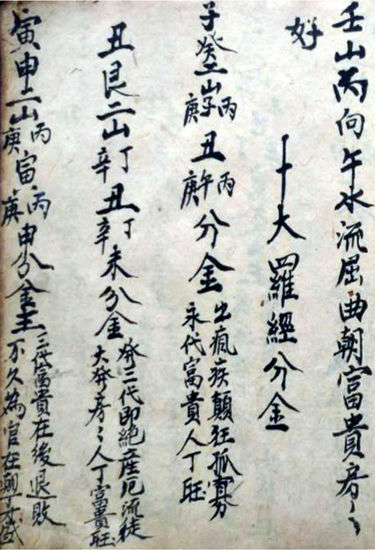 壬山丙向午水流屈曲朝富貴房〻
好
十大羅經分金
子癸二山丙子庚午丙丑庚分金出瘋疾顛狂孤寡
永代富貴人丁旺
丑艮二山丁丑辛丑丁未辛未分金發二代即絕產厄流徒
大發房〻人丁富貴旺
寅申二山丙寅庚寅丙申庚申分金主三代富貴在後退敗
不久為官在朝